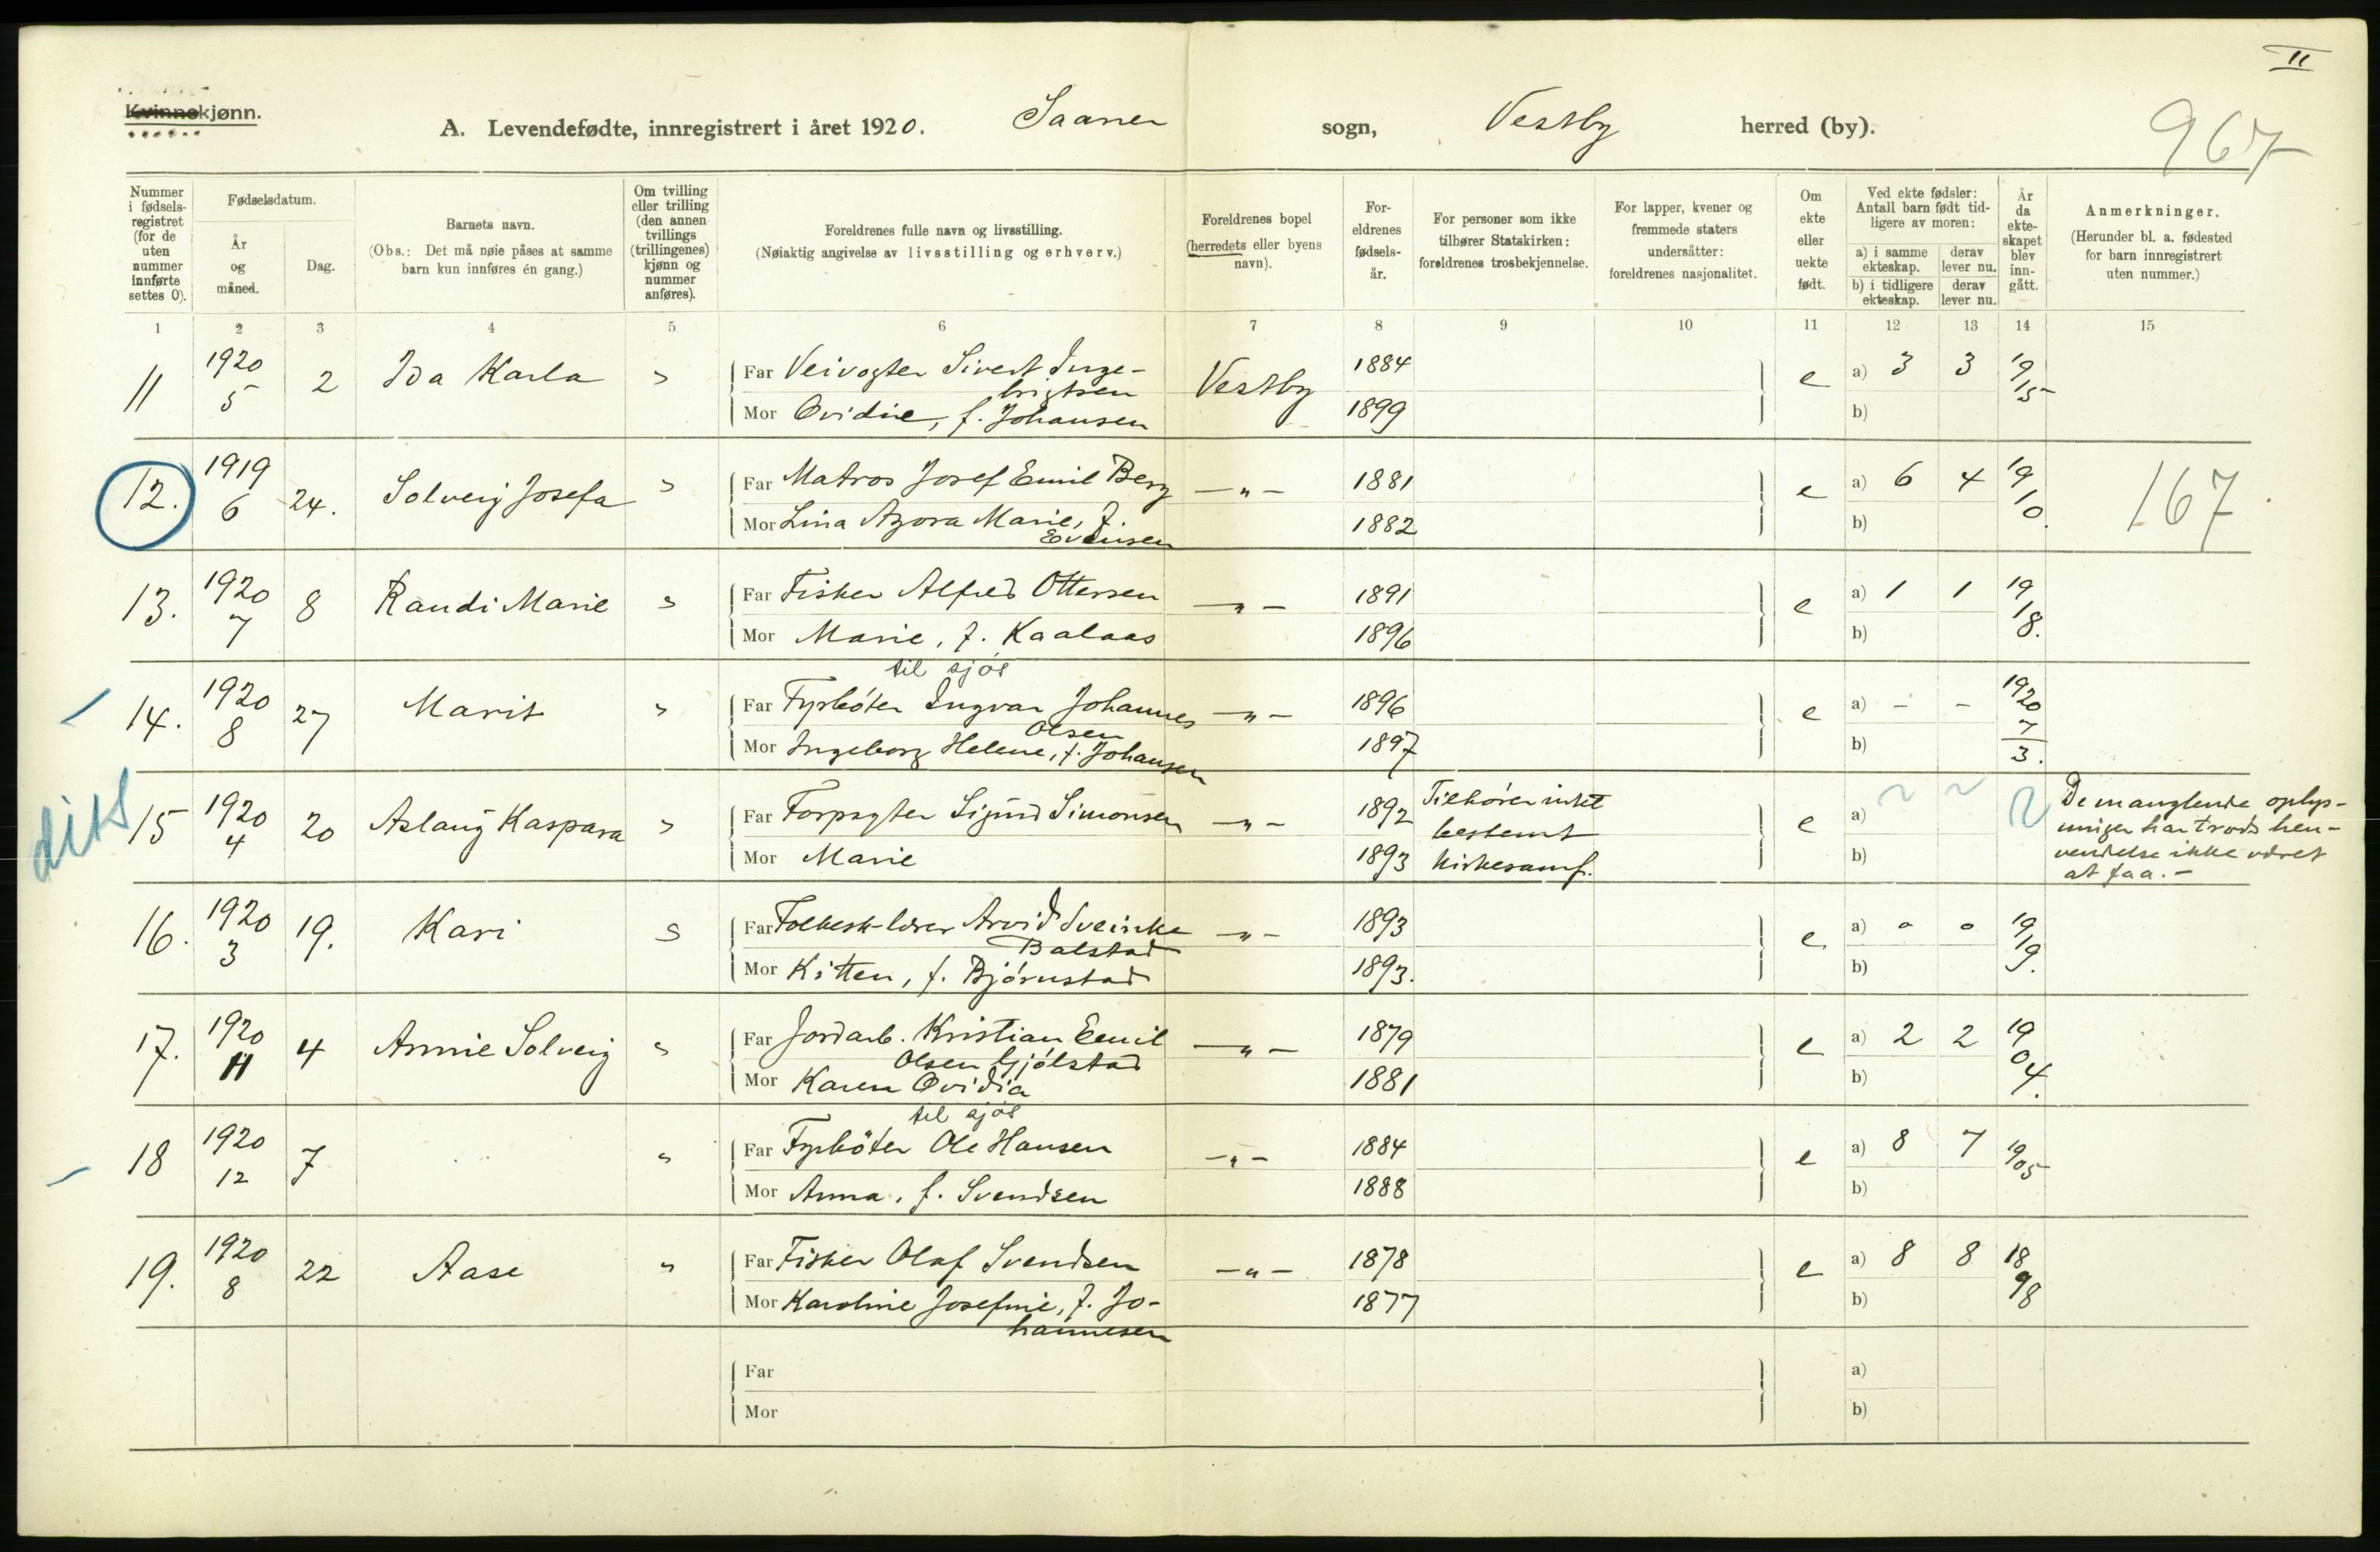 II
Kvinnekjønn.
A. Levendefødte, innregistrert i året 1920. Saaner sogn, Vestby herred (by).
967
Nummer i fødsels-registret (for de uten nummer innførte settes 0).
Fødselsdatum.
År og måned.
Dag.
Barnets navn.
(Obs.: Det må nøie påses at samme barn kun innføres én gang.)
Om tvilling eller trilling (den annen tvillings (trillingenes) kjønn og nummer anføres).
Foreldrenes fulle navn og livsstilling.
(Nøiaktig angivelse av livsstilling og erhverv.)
Foreldrenes bopel (herredets eller byens navn).
For-eldrenes fødsels-år.
For personer som ikke tilhører Statskirken: foreldrenes trosbekjennelse.
For lapper, kvener og fremmede staters undersåtter: foreldrenes nasjonalitet.
Om ekte eller uekte født.
Ved ekte fødsler: Antall barn født tid-ligere av moren:
a) i samme ekteskap.
derav lever nu.
b) i tidligere ekteskap.
derav lever nu.
År da ekte-skapet blev inn-gått.
Anmerkninger.
(Herunder bl. a. fødested for barn innregistrert uten nummer.)
1 2 3 4 5 6 7 8 9 10 11 12 13 14 15
11 1920 5 2 Ida Karla " Far Veivogter Sivert Inge-
brigtsen Vestby 1884 e a) 3 3 19/15
Mor Ovidie, f. Johansen 1899 b)
12. 1919 6 24. Solveig Josefa " Far Matros Josef Emil Berg —"— 1881 e a) 6 4 19/10. 167
Mor Lina Azora Marie, f.
Evensen 1882 b)
13. 1920 7 8 Randi Marie " Far Fisker Alfred Ottersen —"— 1891 e a) 1 1 19/18.
Mor Marie, f. Kaalaas 1896 b)
til sjøs
14. 1920 8 27 Marit " Far Fyrbøter Ingvar Johannes
Olsen —"— 1896 e a) - - 1920 7/3.
Mor Ingeborg Helene, f. Johansen 1897 b)
15 1920 4 20 Aslaug Kaspara " Far Forpagter Sigurd Simonsen —"— 1892 Tilhører intet
bestemt
kirkesamf. e a)
Mor Marie 1893 b)
De manglende oplys-
ninger har trods hen-
vendelse ikke været
at faa.-
16. 1920 3 19. Kari " Far Folkesk-lærer Arvid
Balstad —"— 1893 e a) o o 19/19.
Mor Kitten, f. Bjørnstad 1893. b)
17. 1920 11 4 Annie Solveig " Far Jordarb. Kristian Emil
Olsen Gjølstad —"— 1879 e a) 2 2 19/04.
Mor Karen Ovidia 1881 b)
til sjøs
18 1920 12 7 " Far Fyrbøter Ole Hansen —"— 1884 e a) 8 7 19/05
Mor Anna, f. Svendsen 1888 b)
19. 1920 8 22 Aase " Far Fisker Olaf Svendsen —"— 1878 e a) 8 8 18/98
Mor Karoline Josefine, f. Jo-
hannesen 1877 b)
Far a)
Mor b)